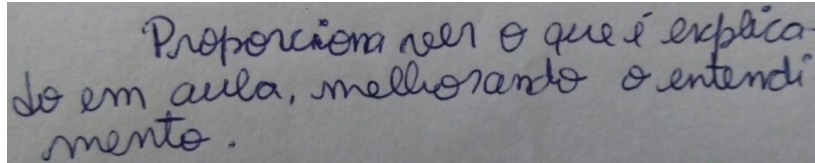 Proporciona ver o que é explica-
do em aula, melhorando o entendi
mento.